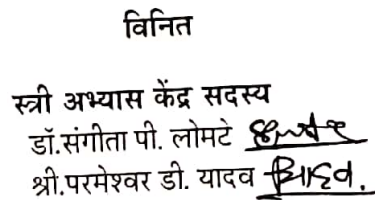 विनित
स्त्री अभ्यास केंद्र सदस्य
डॉ.संगीता पी. लोमटे
श्री.परमेश्वर डी. यादव